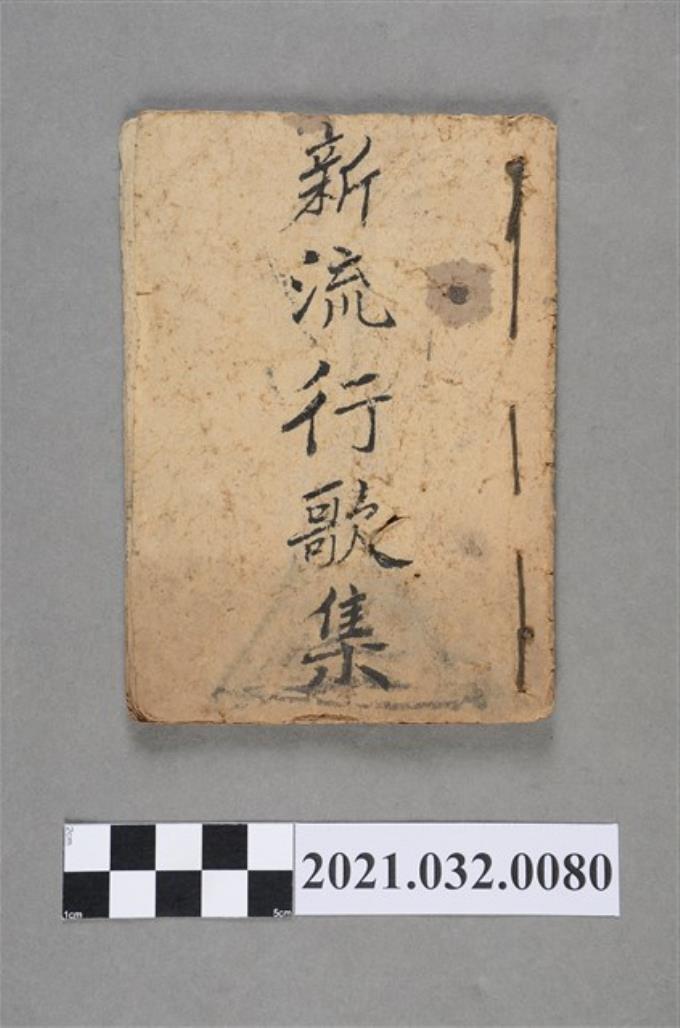 新流行歌集
2cm
1cm
5cm
2021.032.0080